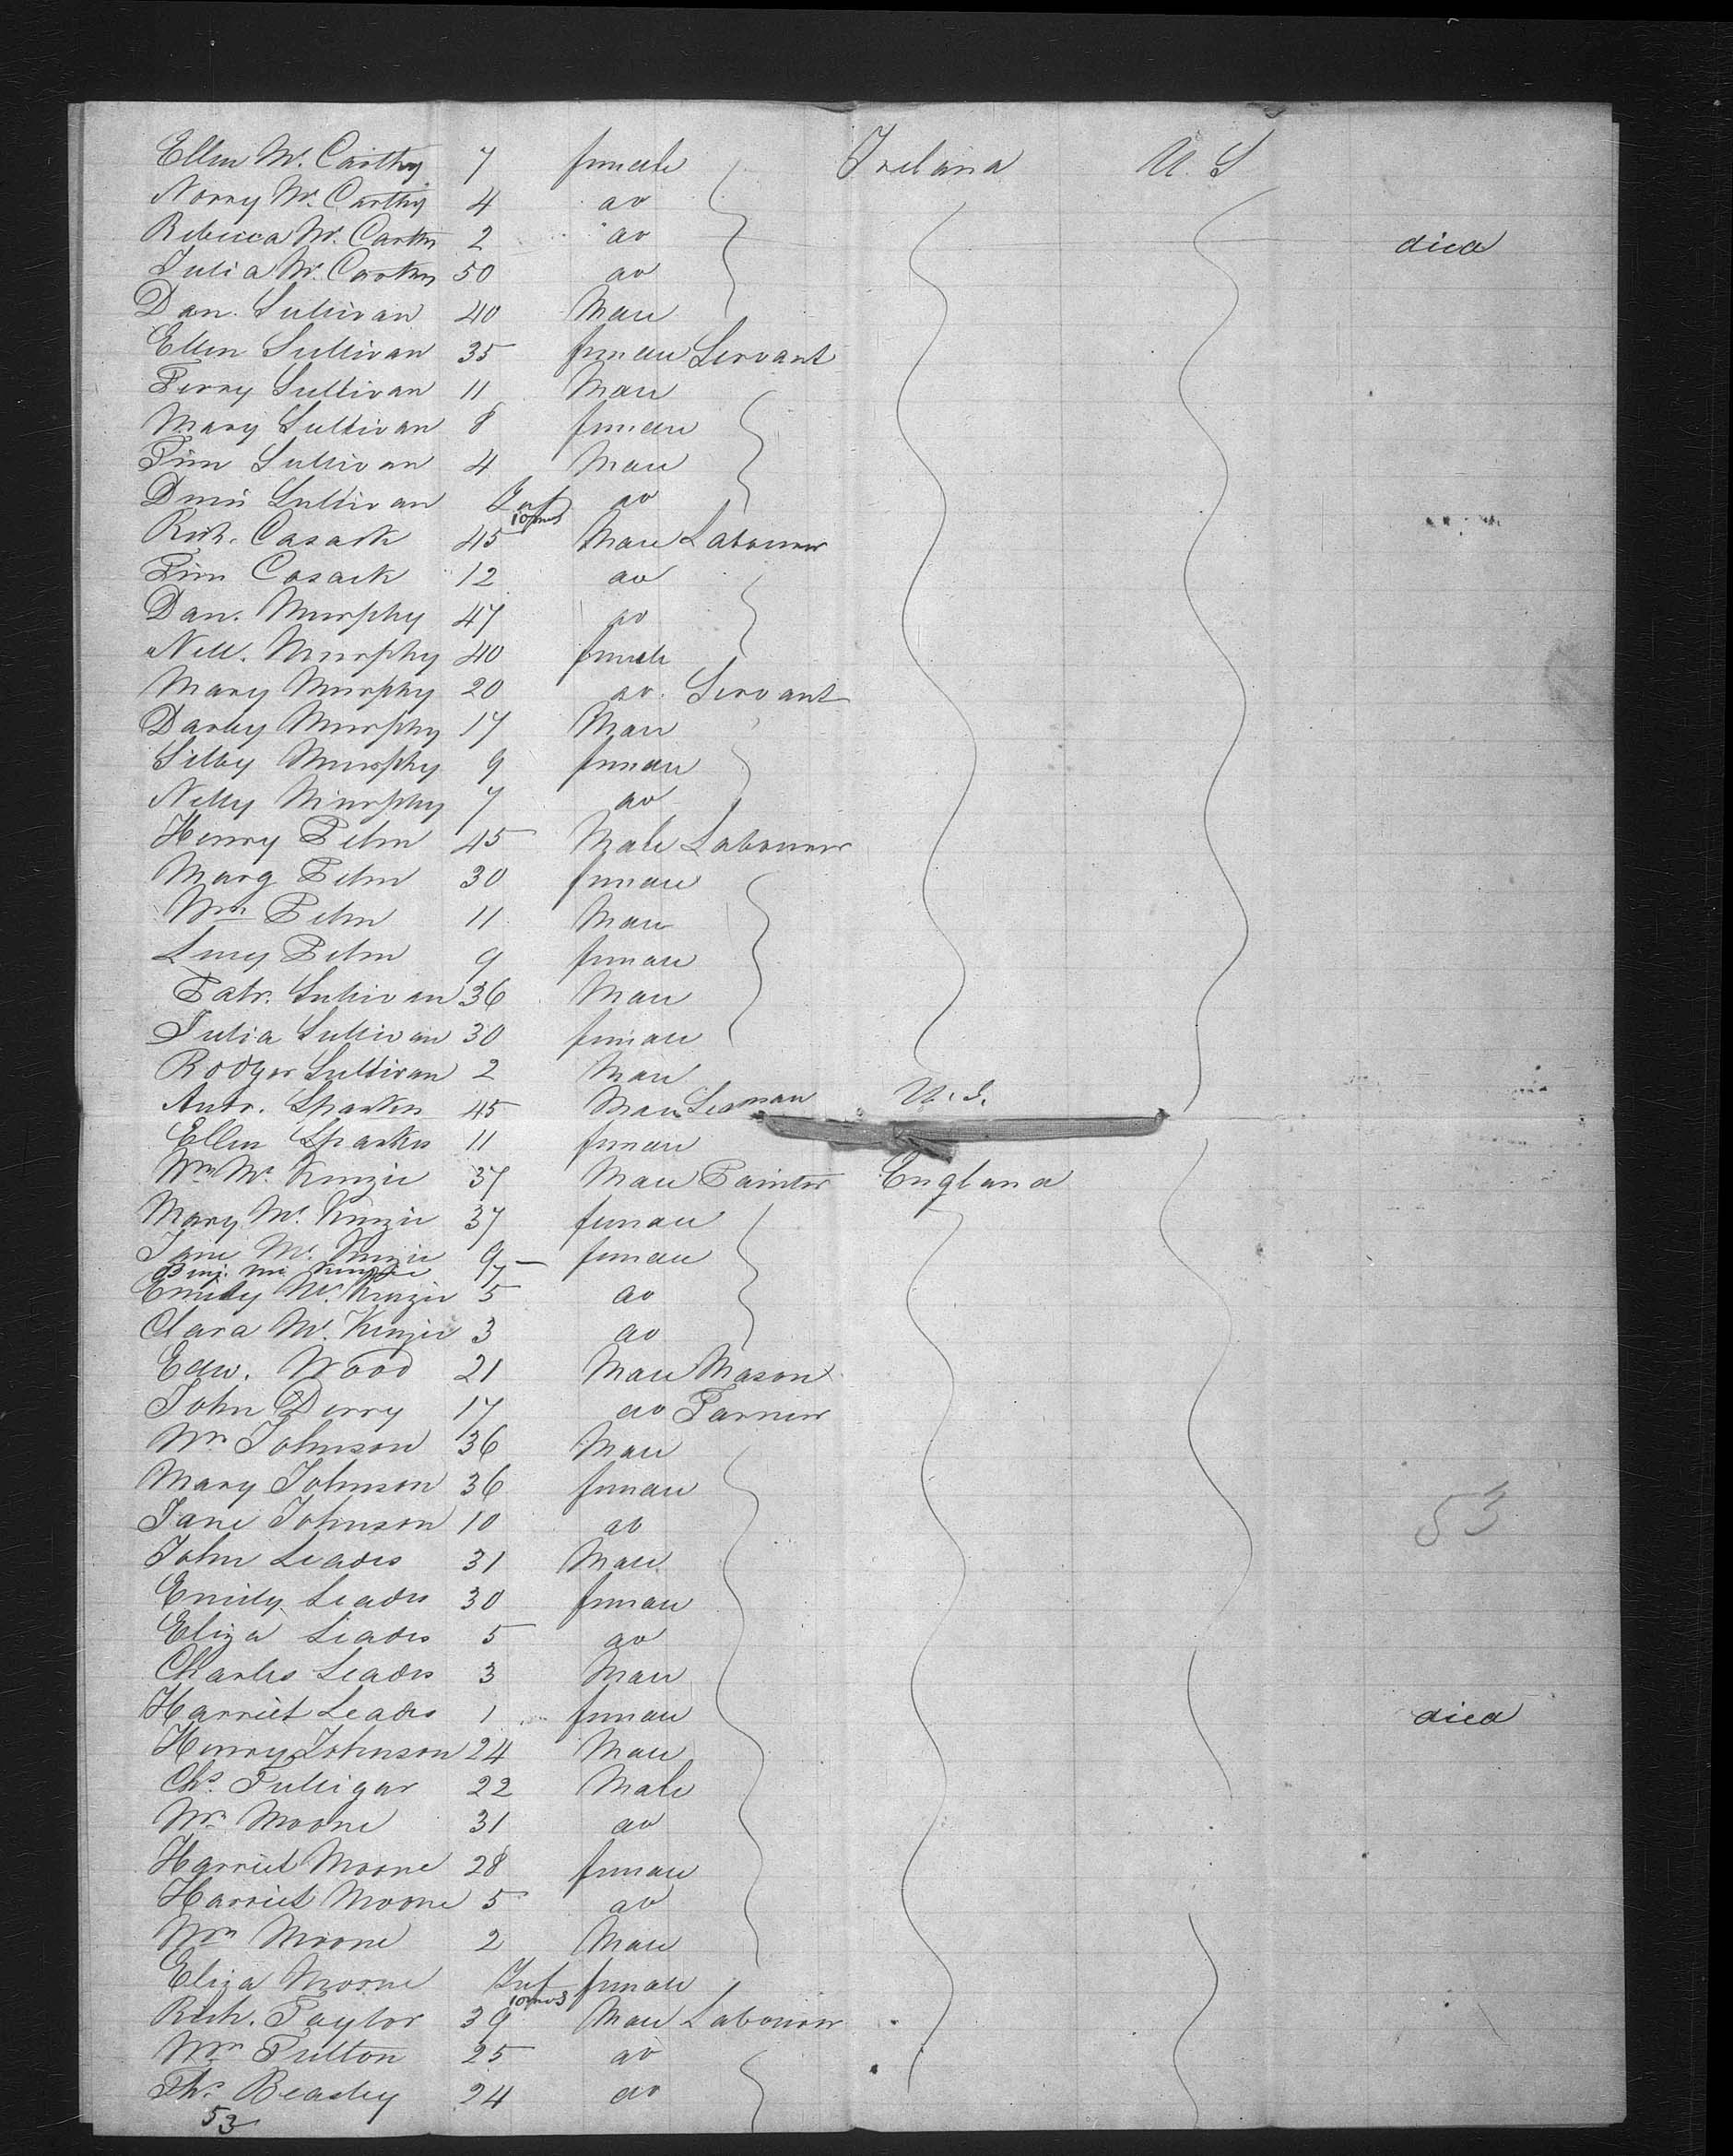 Ellen Mc. Carthy 7 female Ireland U. S
Norry Mc. Carthy 4 do
Rebecca Mc. Carthy 2 do died
Julia Mc. Carthy 50 do
Dan. Sullivan 40 Male
Ellen Sullivan 35 female Servant
Terry Sullivan 11 Male
Mary Sullivan 8 female
Tim Sullivan 4 Male
Denis Sullivan Inf do
10 mos
Rich. Casack 45 Male Labourer
Tim Casack 12 do
Dan. Murphy 47 do
Nell. Murphy 40 female
Mary Murphy 20 do Servant
Darby Murphy 17 Male
Silby Murphy 9 female
Nelly Murphy 7 do
Henry 45 Male Labourer
Marg 30 female
Wm 11 Male
Lucy 9 female
Patr. Sullivan 36 Male
Julia Sullivan 30 female
Rodger Sullivan 2 Male
Andr. Sparkes 45 Male Seaman U. S.
Ellen Sparkes 11 female
Wm Mc. Kenzie 37 Male Painter England
Mary Mc. Kenzie 37 female
Jane Mc. Kenzie 9 female
Benj. Mc Kenzie 7
Emily Mc. Kenzie 5 do
Clara Mc. Kenzie 3 do
Edw. Wood 21 Male Mason
John Derry 17 do Farmer
Wm Johnson 36 Male
Mary Johnson 36 female
Jane Johnson 10 do 53
John Leades 31 Male
Emily Leades 30 female
Eliza Leades 5 do
Charles Leades 3 Male
Harriet Leades 1 female died
Henry Johnson 24 Male
Chs. Fulligar 22 Male
Wm Moone 31 do
Harriet Moone 28 female
Harriet Moone 5 do
Wm Moone 2 Male
Eliza Moone Inf female
10 mos
Rich. Taylor 39 Male Labourer
Wm Fulton 25 do
Ths. Beasley 24 do
53